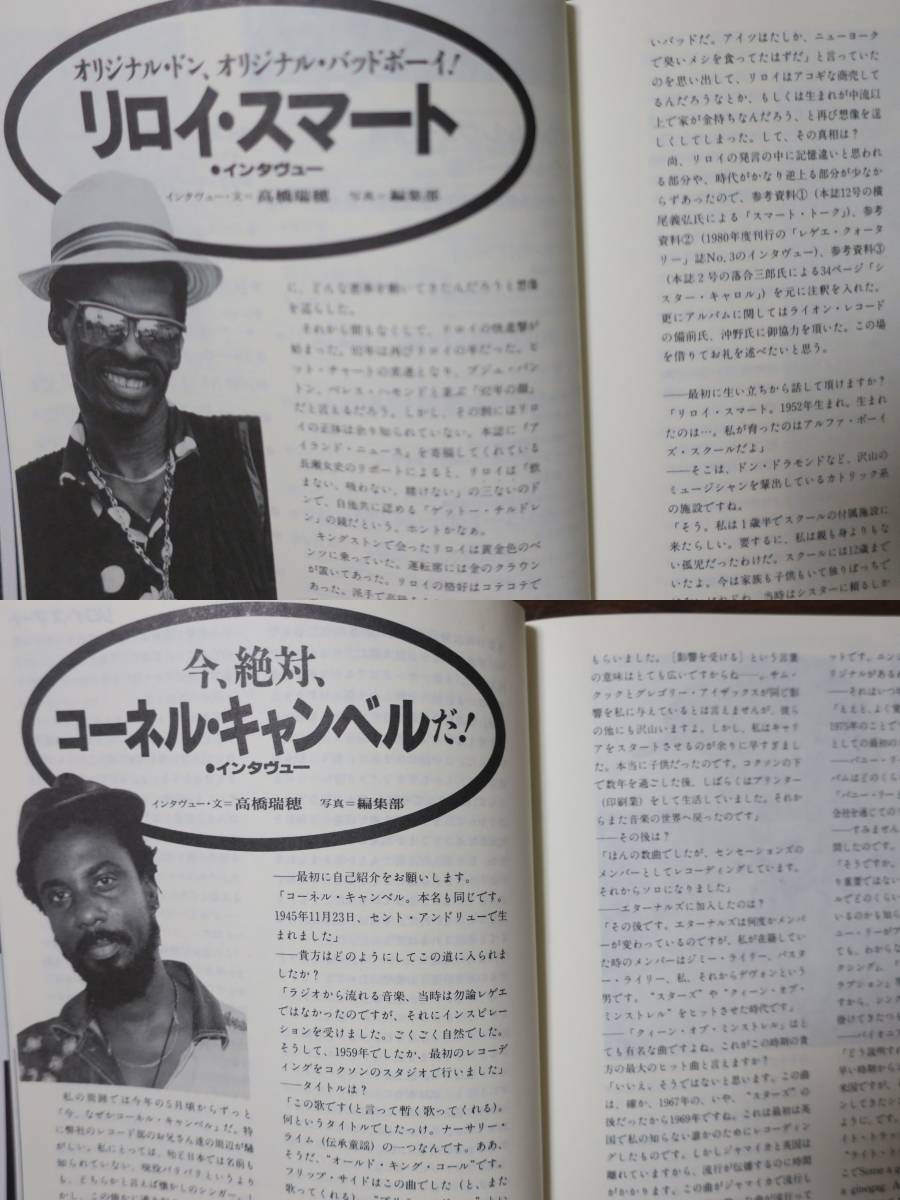 オリジナル・ドン、オリジナル・バッドボーイ!
リロイ・スマート
●インタヴュー
インタヴュー・文=高橋瑞穂 写真=編集部
に、どんな悪事を働いてきたんだろうと想像
を逞らした。
それから間もなくして、リロイの快進撃が
始まった。92年は再びリロイの年だった。ヒ
ット・チャートの常連となり、ブジュ・バン
トン、ベレス・ハモンドと並ぶ「92年の顔」
だと言えるだろう。しかし、その割にはリロ
イの正体は余り知られていない。本誌に『ア
イランド・ニュース』を寄稿してくれている
長瀬女史のリポートによると、リロイは「飲
まない、吸わない、賭けない」の三ないのド
ンで、自他共に認める「ゲットー・チルドレ
ン」の鏡だという。ホントかなぁ。
キングストンで会ったリロイは黄金色のベ
ンツに乗っていた。運転席には金のクラウン
が置いてあった。リロイの格好はコテコテで
あった。派手で
いバッドだ。アイツはたしか、ニューヨーク
で臭いメシを食ってたはずだ」と言っていた
のを思い出して、リロイはアコギな商売して
るんだろうなとか、もしくは生まれが中流以
上で家が金持ちなんだろう、と再び想像を逞
しくしてしまった。して、その真相は?
尚、リロイの発言の中に記憶違いと思われ
る部分や、時代がかなり逆上る部分が少なか
らずあったので、参考資料①(本誌12号の横
尾義弘氏による「スマート・トーク」)、参考
資料②(1980年度刊行の「レゲエ・クォータ
リー」誌No.3のインタヴュー)、参考資料③
(本誌2号の落合三郎氏による34ページ「シ
スター・キャロル」)を元に注釈を入れた。
更にアルバムに関してはライオン・レコード
の備前氏、沖野氏に御協力を頂いた。この場
を借りてお礼を述べたいと思う。
——最初に生い立ちから話して頂けますか?
「リロイ・スマート。1952年生まれ。生まれ
たのは…。私が育ったのはアルファ・ボーイ
ズ・スクールだよ」
——そこは、ドン・ドラモンドなど、沢山の
ミュージシャンを輩出しているカトリック系
の施設ですね。
「そう。私は1歳半でスクールの付属施設に
来たらしい。要するに、私は親も身よりもな
い孤児だったわけだ。スクールには12歳まで
いたよ。今は家族も子供もいて独りぼっちで
はないけれどね、当時はシスターに頼るしか
今、絶対、
コーネル・キャンベルだ!
●インタヴュー
インタヴュー・文=高橋瑞穂 写真=編集部
——最初に自己紹介をお願いします。
「コーネル・キャンベル。本名も同じです。
1945年11月23日、セント・アンドリューで生
まれました」
——貴方はどのようにしてこの道に入られま
したか?
「ラジオから流れる音楽、当時は勿論レゲエ
ではなかったのですが、それにインスピレー
ションを受けました。ごくごく自然でした。
そうして、1959年でしたか、最初のレコーデ
ィングをコクソンのスタジオで行いました」
——タイトルは?
「この歌です(と言って暫く歌ってくれる)。
何というタイトルでしたっけ。ナーサリー・
ライム(伝承童謡)の一つなんです。ああ、
そうだ、“オールド・キング・コール”です。
フリップ・サイドはこの曲でした(と、また
歌ってくれる)。
私の周囲では今年の5月頃からずっと
「今、なぜかコーネル・キャンベル」だ。特
に弊社のレコード部のお兄さん達の周辺が騒
がしい。私にとっては、殆ど日本では名前も
知られていない、現役バリバリというより
も、どちらかと言えば懐かしのシンガー。し
もらいました。[影響を受ける]という言葉
の意味はとても広いですからね——。サム・
クックとグレゴリー・アイザックスが同じ影
響を私に与えているとは言えませんが、彼ら
の他にも沢山いますよ。しかし、私はキャリ
アをスタートさせるのが余りに早すぎまし
た。本当に子供だったのです。コクソンの下
で数年を過ごした後、しばらくはプリンター
(印刷業)をして生活していました。それか
らまた音楽の世界へ戻ったのです」
——その後は?
「ほんの数曲でしたが、センセーションズの
メンバーとしてレコーディングしています。
それからソロになりました」
——エターナルズに加入したのは?
「その後です。エターナルズは何度かメンバ
ーが変わっているのですが、私が在籍してい
た時のメンバーはジミー・ライリー、バスタ
ー・ライリー、私、それからデヴォンという
男です。“スターズ”や“クィーン・オブ・
ミンストレル”をヒットさせた時代です」
——「クィーン・オブ・ミンストレル」はと
ても有名な曲ですよね。これがこの時期の貴
方の最大のヒット曲と言えますか?
「いいえ、そうではないと思います。この曲
は、確か、1967年の、いや、“スターズ”の
後だったから1969年ですね。これは最初は英
国で私の知らない誰かのためにレコーディン
グしたものです。しかしジャマイカと英国は
離れていますから、流行が伝播するのに時間
がかかります。この曲がジャマイカで流行し
ットです。ニン
リジナルがある
——それはいつ
「ええと、よく覚
1975年のことで
としての最初の
——バニー・リー
バムはどのくら
「バニー・リーと
会社を通じての
——すみません
聞したのです。
「そうですか。
り重要ではない
ルでどのくらい
いるのかも知ら
ニー・リーがア
ても、わからな
クシング」、「
ラプション」等
すから、シンス
後けてきたつも
——パイオニア
「どう説明すれ
早い時期から
米国ですが、イ
ンしてきたシン
ように、です。
イト・トラッ
“ライト・ト